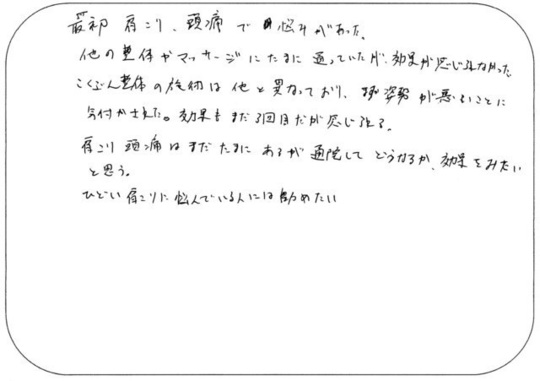 最初 肩こり、頭痛で悩みがあった。
他の整体やマッサージにたまに通っていたが、効果が感じれなかった
こくぶん整体の施術は他と異なっており、姿勢が悪いことに
気付かされた。効果もまだ3回目だが感じれる。
肩こり 頭痛はまだたまにあるが通院してどうなるか、効果をみたい
と思う。
ひどい肩こりに悩んでいる人には勧めたい